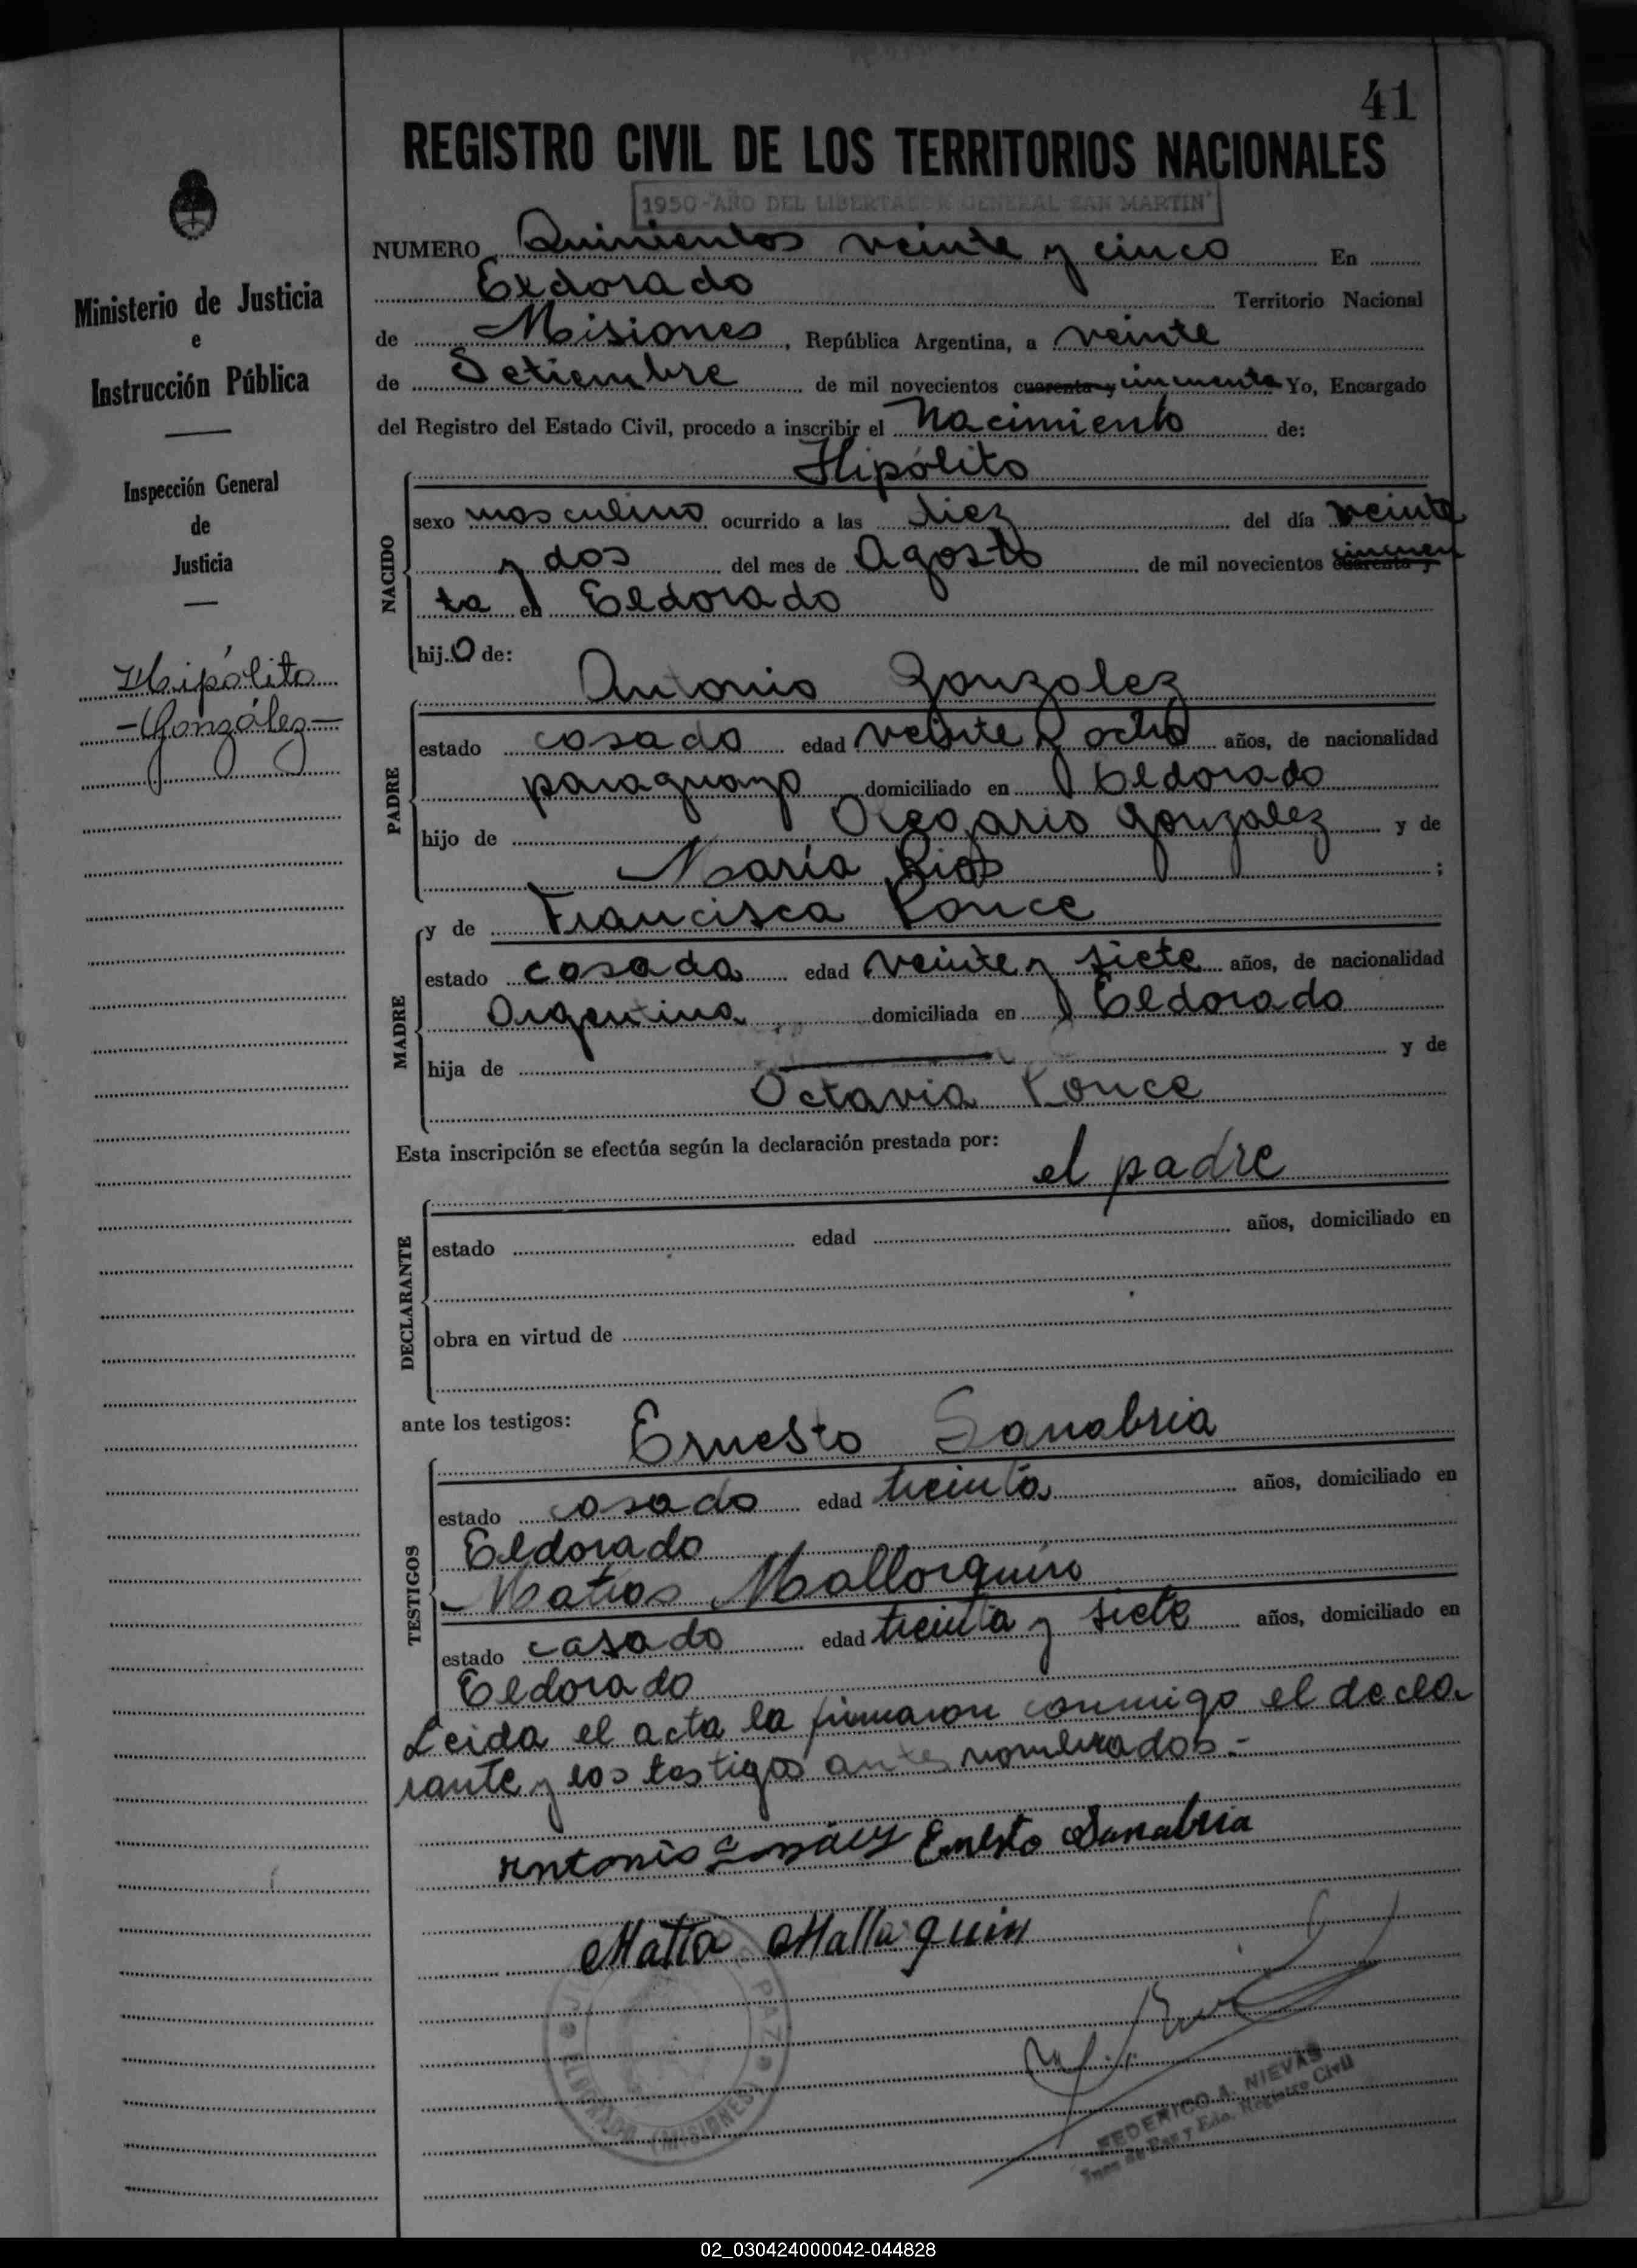 41
REGISTRO CIVIL DE LOS TERRITORIOS NACIONALES
1950-"AÑO DEL LIBERTADOR GENERAL SAN MARTIN"
NUMERO Quinientos veinte y cinco En
Eldorado Territorio Nacional
de Misiones, República Argentina, a veinte
de Setiembre de mil novecientos cuarenta y cincuenta Yo, Encargado
del Registro del Estado Civil, procedo a inscribir el Nacimiento de:
Hipólito
NACIDO
sexo masculino ocurrido a las diez del día veinte
y dos del mes de Agosto de mil novecientos cuarenta y cincuen
ta en Eldorado
hijo de:
Antonio Gonzalez
PADRE
estado casado edad veinte y ocho años, de nacionalidad
paraguayo domiciliado en Eldorado
hijo de Olegario Gonzalez y de
María Rios ;
y de Francisca Ponce
MADRE
estado casada edad veinte y siete años, de nacionalidad
Argentina domiciliada en Eldorado
hija de y de
Octavia Ponce
Esta inscripción se efectúa según la declaración prestada por:
el padre
DECLARANTE
estado edad años, domiciliado en
obra en virtud de
ante los testigos: Ernesto Sanabria
TESTIGOS
estado casado edad treinta años, domiciliado en
Eldorado
Matias Mallorquin
estado casado edad treinta y siete años, domiciliado en
Eldorado
Leida el acta la firmaron conmigo el decla
rante y los testigos antes nombrados.-
Antonio Ernesto Sanabria
Ministerio de Justicia
e
Instrucción Pública
Inspección General
de
Justicia
Hipólito
-González-
PAZ
ELDORADO (MISIONES)
FEDERICO A. NIEVAS
Juez de Paz y Edo. Registro Civil
02_030424000042-044828